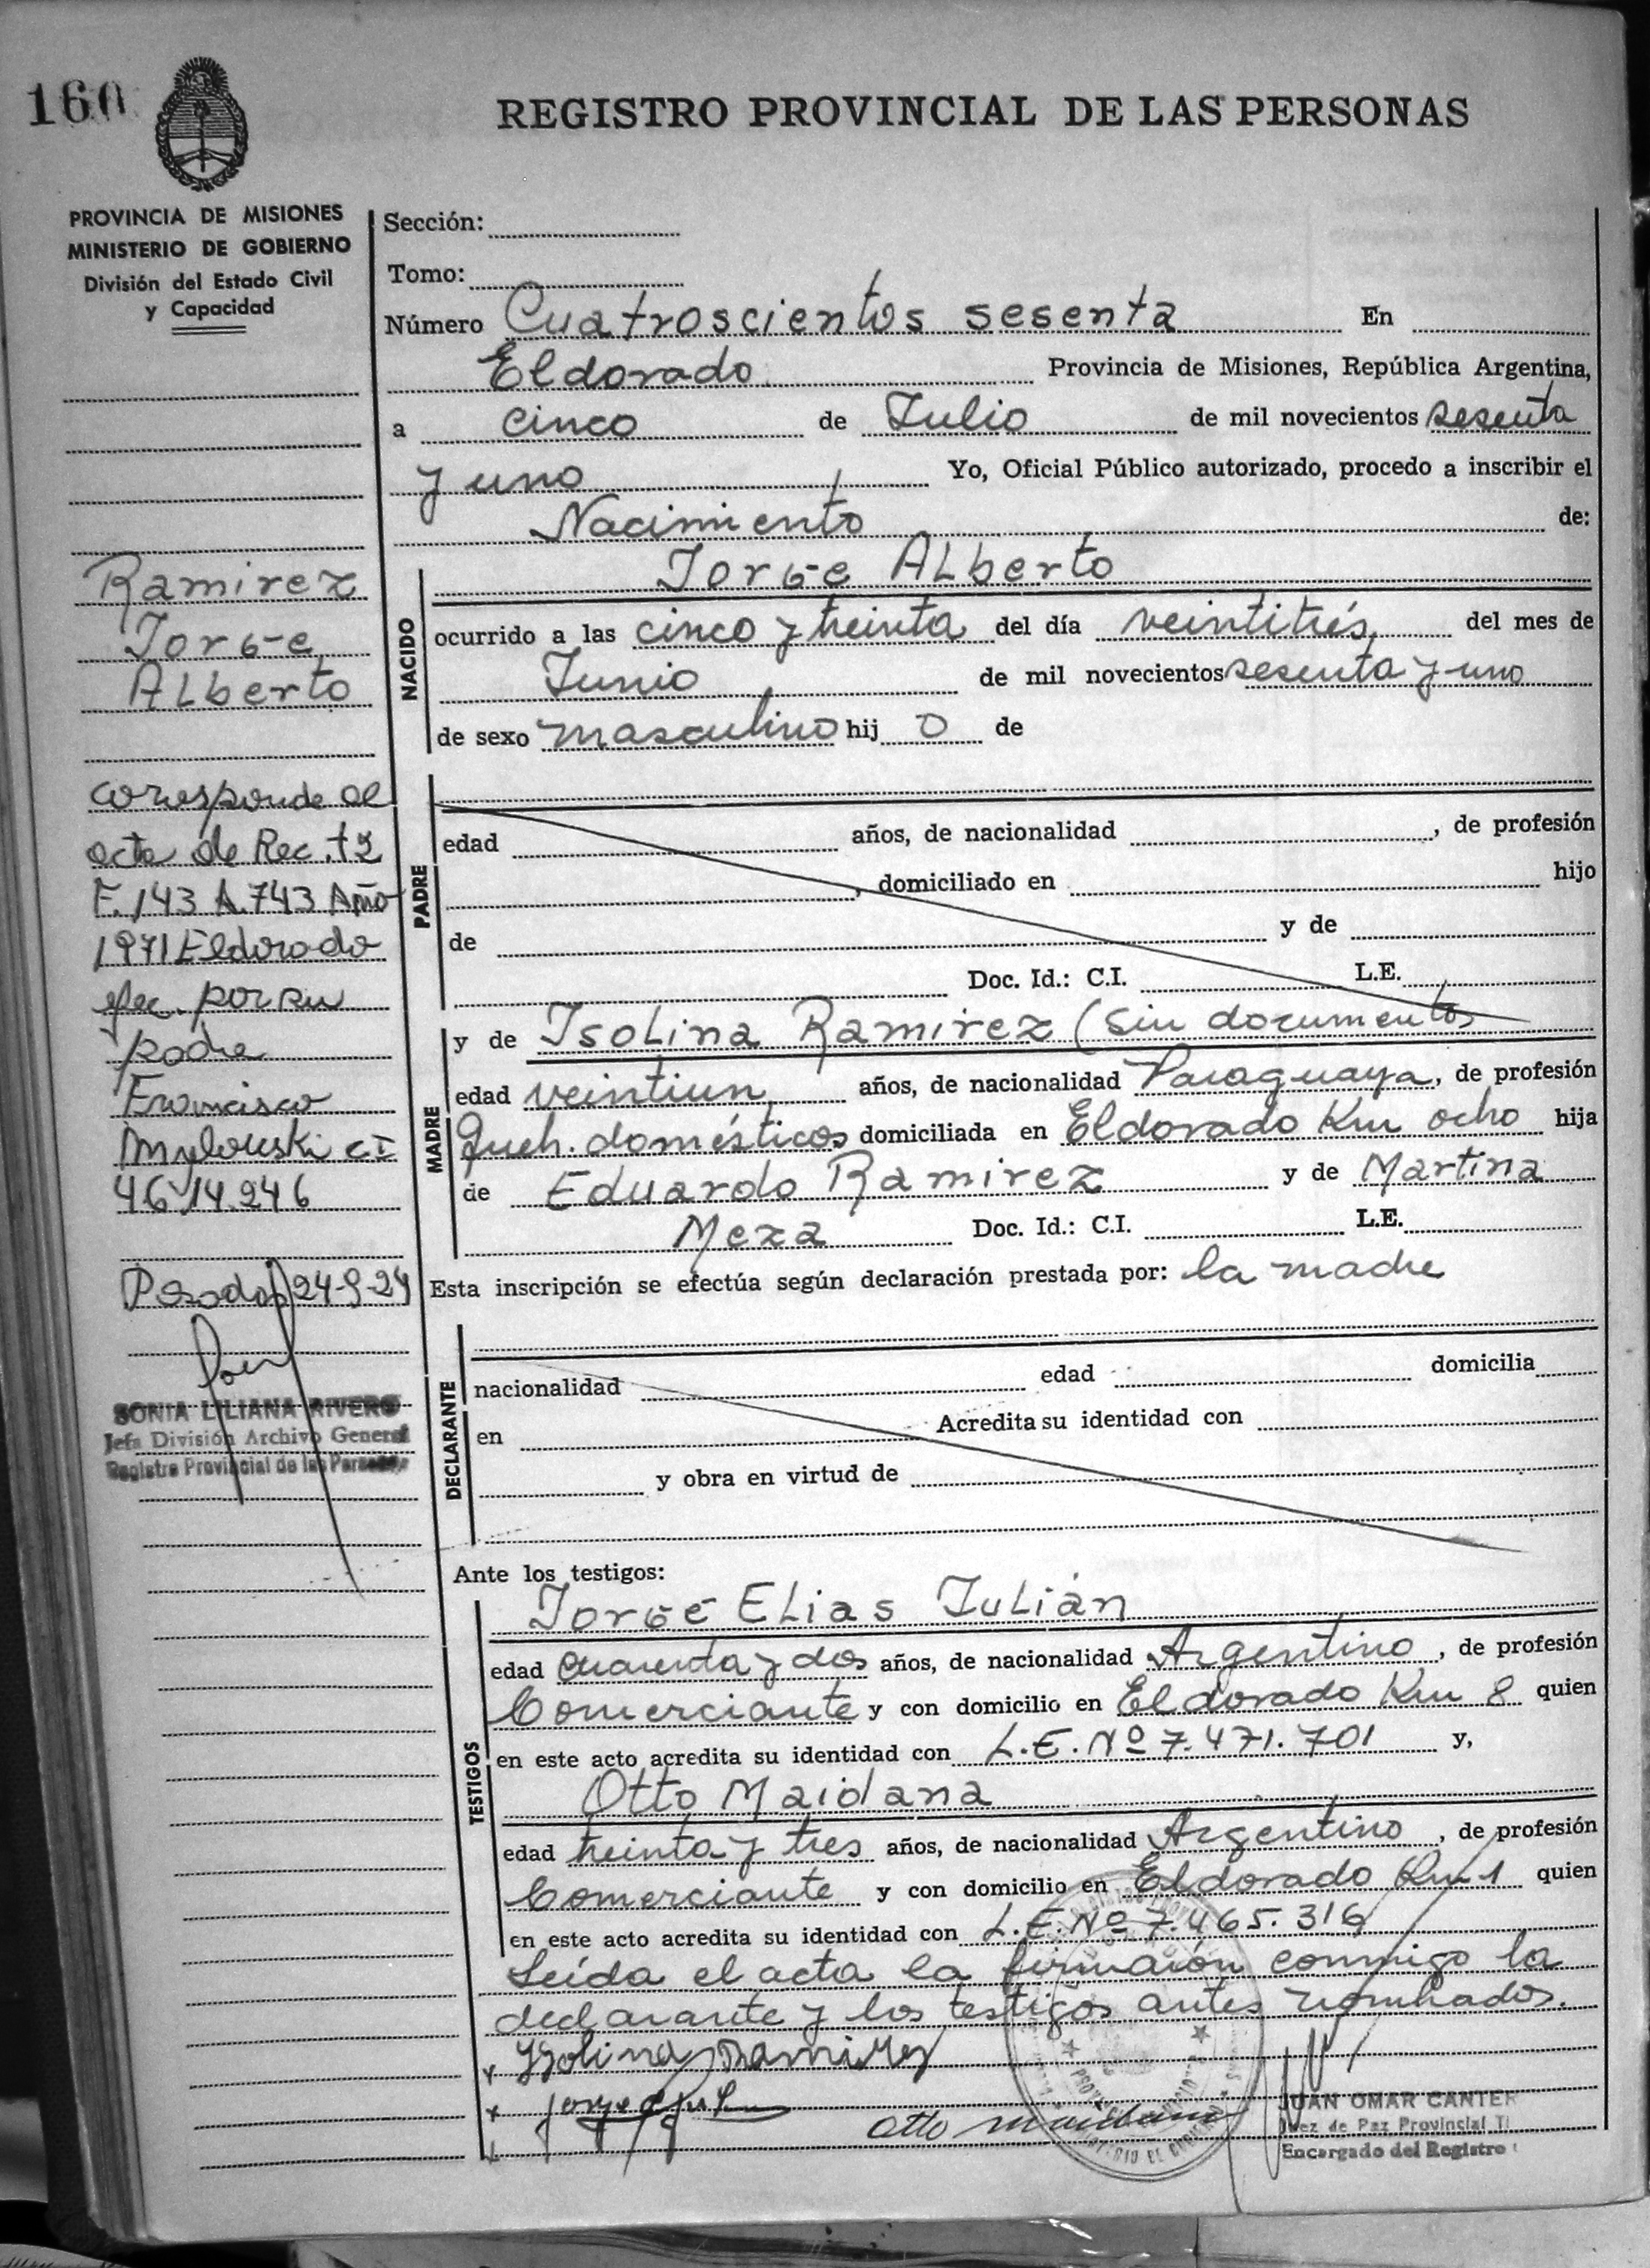 160
REGISTRO PROVINCIAL DE LAS PERSONAS
PROVINCIA DE MISIONES
MINISTERIO DE GOBIERNO
División del Estado Civil
y Capacidad
Ramirez
Jorge
Alberto
corresponde al
acta de Rec. t2
F. 143 A. 743 Año
1971 Eldorado
por su
padre
Francisco
CI
24-9-24
SONIA LILIANA RIVERO
Jefa División Archivo General
Registro Provincial de las Personas
Sección:
Tomo:
Número Cuatroscientos sesenta En
Eldorado Provincia de Misiones, República Argentina,
a cinco de Julio de mil novecientos sesenta
y uno Yo, Oficial Público autorizado, procedo a inscribir el
Nacimiento de:
Jorge Alberto
NACIDO
ocurrido a las cinco y treinta del día veintitrés del mes de
Junio de mil novecientos sesenta y uno
de sexo masculino hij o de
PADRE
edad años, de nacionalidad , de profesión
, domiciliado en hijo
de y de
Doc. Id.: C.I. L.E.
MADRE
y de Isolina Ramirez (sin documentos
edad veintiun años, de nacionalidad Paraguaya, de profesión
Queh. domésticos domiciliada en Eldorado Km ocho hija
de Eduardo Ramirez y de Martina
Meza Doc. Id.: C.I. L.E.
Esta inscripción se efectúa según declaración prestada por: la madre
DECLARANTE
nacionalidad edad domicilia
en Acredita su identidad con
y obra en virtud de
Ante los testigos:
TESTIGOS
Jorge Elias Julián
edad cuarenta y dos años, de nacionalidad Argentino, de profesión
Comerciante y con domicilio en Eldorado Km 8 quien
en este acto acredita su identidad con L.E. Nº 7.471.701 y,
Otto Maidana
edad treinta y tres años, de nacionalidad Argentino, de profesión
Comerciante y con domicilio en Eldorado Km 1 quien
en este acto acredita su identidad con L.E. Nº 7.465.316
Leída el acta la firmaron conmigo la
declarante y los testigos antes nombrados.
x Ysolina Ramirez
x
Otto Maidana
JUAN OMAR CANTER
Juez de Paz Provincial
Encargado del Registro